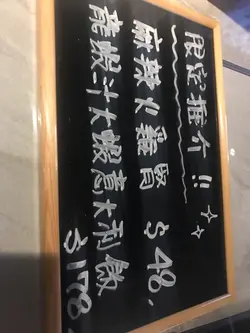 限定推介!!
麻辣火雞腎 $48.
龍蝦汁大蝦意大利飯
$178